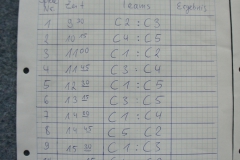 Nr. Zeit Teams Ergebnis
1 9 30 C2 : C3
2 10 15 C4 : C5
3 11 00 C1 : C2
4 11 45 C3 : C4
5 12 30 C1 : C5
6 13 15 C3 : C5
7 14 00 C1 : C4
8 14 45 C5 C2
9 15 30 C1 : C3